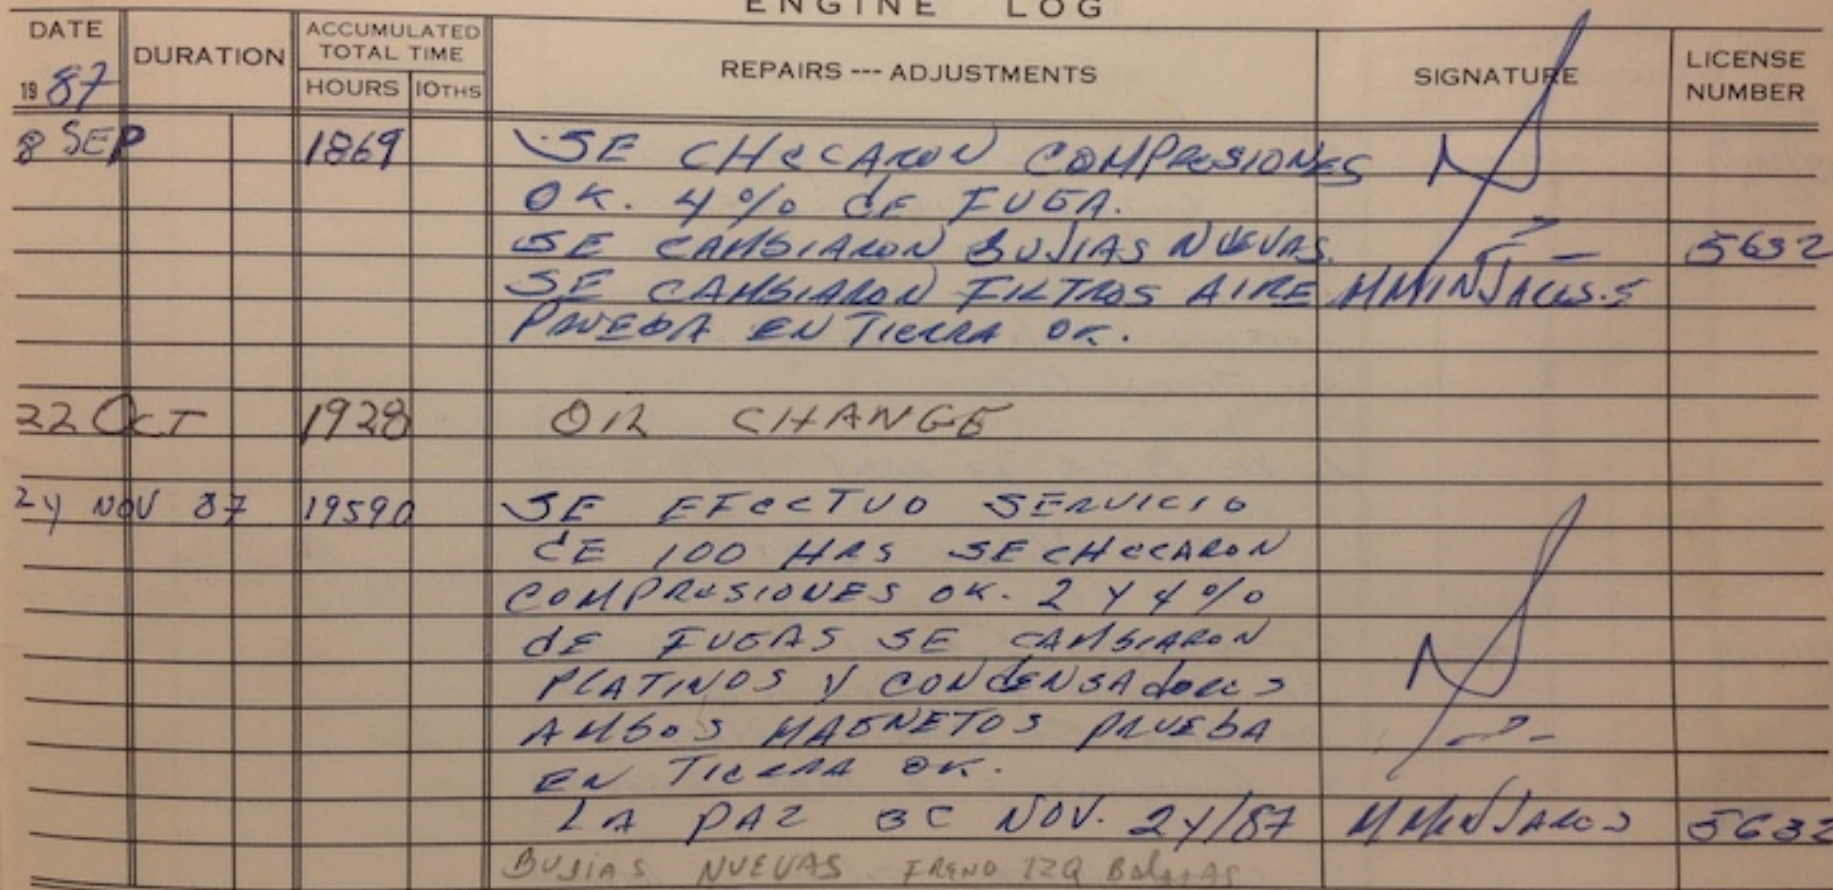 ENGINE LOG
DATE
1987
DURATION
ACCUMULATED TOTAL TIME
HOURS 10THS
REPAIRS --- ADJUSTMENTS
SIGNATURE
LICENSE NUMBER
8 SEP 1869 SE CHECARON COMPRESIONES
OK. 4% DE FUGA.
SE CAMBIARON BUJIAS NUEVAS. 5632
SE CAMBIARON FILTROS AIRE
PRUEBA EN TIERRA OK.
22 OCT 1928 OIL CHANGE
24 NOV 87 19590 SE EFECTUO SERVICIO
DE 100 HRS SE CHECARON
COMPRESIONES OK. 2 Y 4%
DE FUGAS SE CAMBIARON
PLATINOS Y CONDENSADORES
AMBOS MAGNETOS PRUEBA
EN TIERRA OK.
LA PAZ BC NOV. 24/87 5632
BUJIAS NUEVAS FRENO IZQ